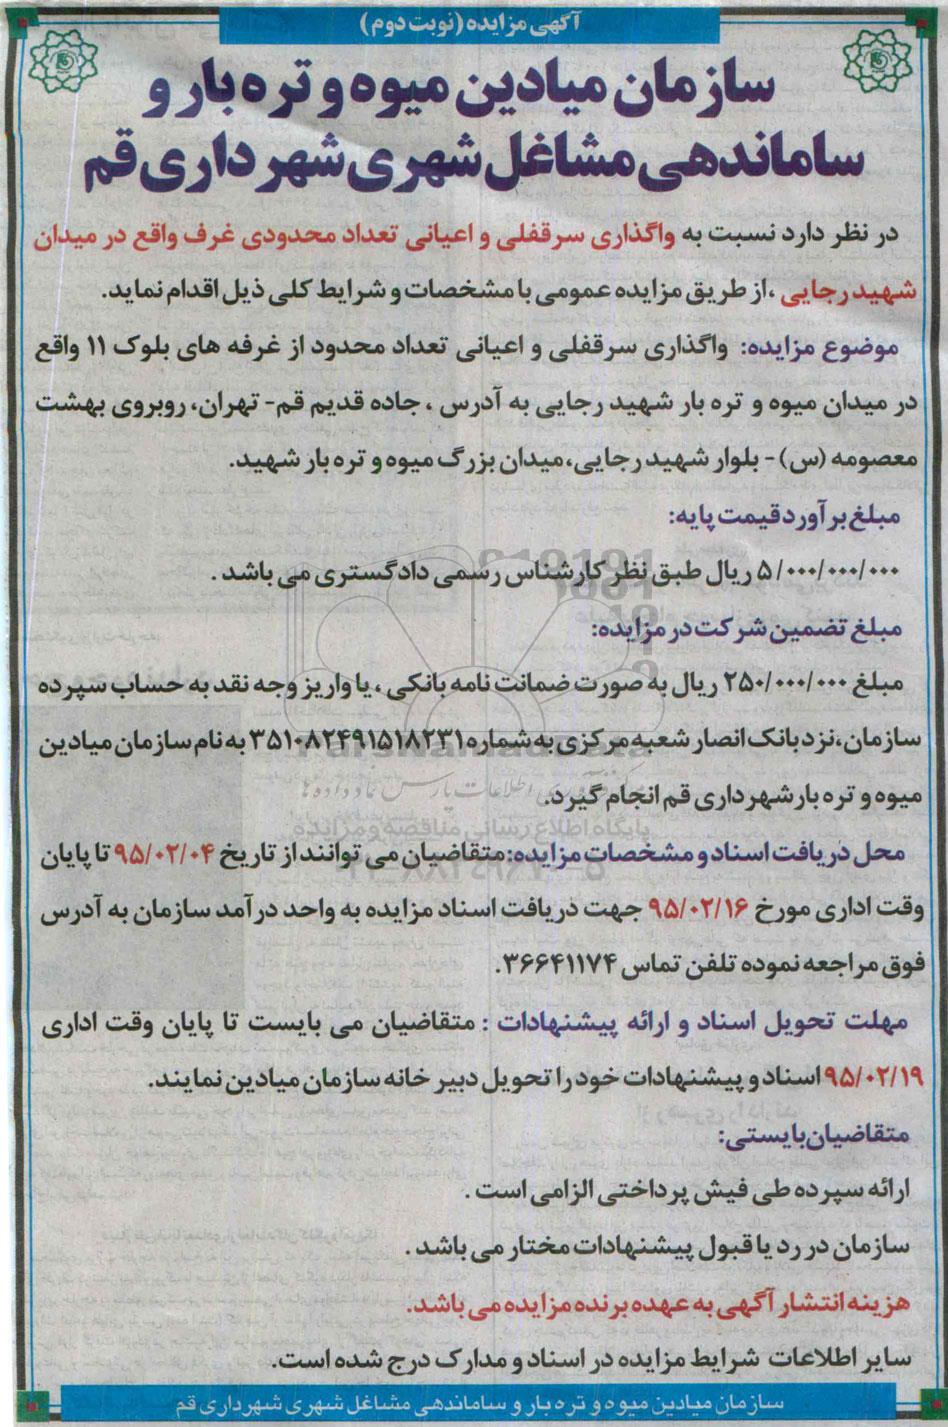 آگهی مزایده (نوبت دوم)
سازمان میادین میوه و تره بار و
ساماندهی مشاغل شهری شهرداری قم
در نظر دارد نسبت به واگذاری سرقفلی و اعیانی تعداد محدودی غرف واقع در میدان
شهید رجایی ،از طریق مزایده عمومی با مشخصات و شرایط کلی ذیل اقدام نماید.
موضوع مزایده: واگذاری سرقفلی و اعیانی تعداد محدود از غرفه های بلوک ۱۱ واقع
در میدان میوه و تره بار شهید رجایی به آدرس ، جاده قدیم قم- تهران، روبروی بهشت
معصومه (س) - بلوار شهید رجایی، میدان بزرگ میوه و تره بار شهید.
مبلغ برآورد قیمت پایه:
۵/۰۰۰/۰۰۰/۰۰۰ ریال طبق نظر کارشناس رسمی دادگستری می باشد .
مبلغ تضمین شرکت در مزایده:
مبلغ ۲۵۰/۰۰۰/۰۰۰ ریال به صورت ضمانت نامه بانکی ، یا واریز وجه نقد به حساب سپرده
سازمان، نزد بانک انصار شعبه مرکزی به شماره ۳۵۱۰۸۲۴۹۱۵۱۸۲۳۱ به نام سازمان میادین
میوه و تره بار شهرداری قم انجام گیرد.
پایگاه اطلاع رسانی مناقصه و مزایده
محل دریافت اسناد و مشخصات مزایده: متقاضیان می توانند از تاریخ ۹۵/۰۲/۰۴ تا پایان
وقت اداری مورخ ۹۵/۰۲/۱۶ جهت دریافت اسناد مزایده به واحد درآمد سازمان به آدرس
فوق مراجعه نموده تلفن تماس ۳۶۶۴۱۱۷۴.
مهلت تحویل اسناد و ارائه پیشنهادات : متقاضیان می بایست تا پایان وقت اداری
۹۵/۰۲/۱۹ اسناد و پیشنهادات خود را تحویل دبیر خانه سازمان میادین نمایند.
متقاضیان بایستی:
ارائه سپرده طی فیش پرداختی الزامی است .
سازمان در رد یا قبول پیشنهادات مختار می باشد .
هزینه انتشار آگهی به عهده برنده مزایده می باشد.
سایر اطلاعات شرایط مزایده در اسناد و مدارک درج شده است.
سازمان میادین میوه و تره بار و ساماندهی مشاغل شهری شهرداری قم